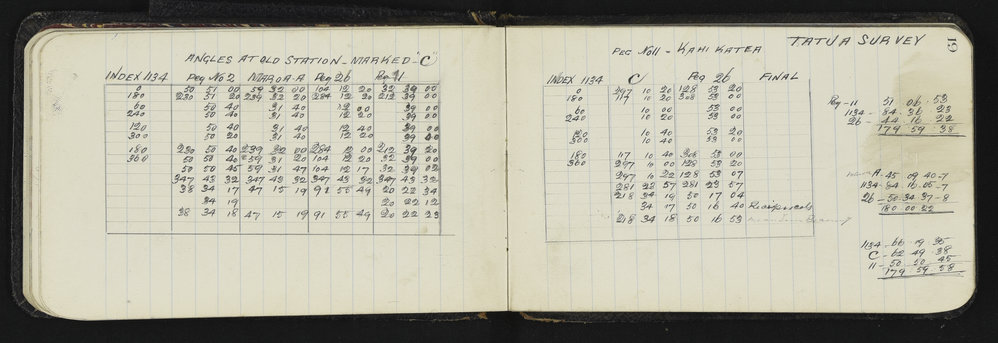 ANGLES AT OLD STATION - MARKED "C"
INDEX 1134 Peg No 2 MAROA-A Peg 26 Peg 11
0 50 51 00 59 32 00 104 12 20 32 39 00
180 230 51 20 239 32 20 284 12 20 212 39 00
60 50 40 31 40 12 00 39 00
240 50 40 31 40 12 20 39 00
120 50 40 31 40 12 40 39 00
300 50 20 31 40 12 20 39 00
180 230 50 40 239 32 00 284 12 00 212 39 20
360 50 50 40 59 31 20 104 12 20 32 39 00
50 50 45 59 31 47 104 12 17 32 39 02
347 43 32 347 43 32 347 43 32 347 43 32
38 34 17 47 15 19 91 55 49 20 22 34
34 19 20 22 12
38 34 18 47 15 19 91 55 49 20 22 23
19
TATUA SURVEY
PEG No 11 - KAHIKATEA
INDEX 1134 C Peg 26 FINAL
0 297 10 20 128 53 20
180 117 10 20 308 53 00
60 10 00 53 00
240 10 20 53 00
120 10 40 53 20
300 10 40 53 00
180 117 10 40 308 53 00
360 297 10 00 128 53 20
297 10 22 128 53 07
281 23 57 281 23 57
218 34 19 50 17 04
34 17 50 16 40 Reciprocals
218 34 18 50 16 53
Peg - 11 51 06 53
1134 - 84 36 23
26 - 44 16 22
179 59 38
A - 45 09 40-7
1134 - 84 16 05-7
26 - 50 34 37-8
180 00 22
1134 - 66 19 35
C - 62 49 38
11 - 50 50 45
179 59 58